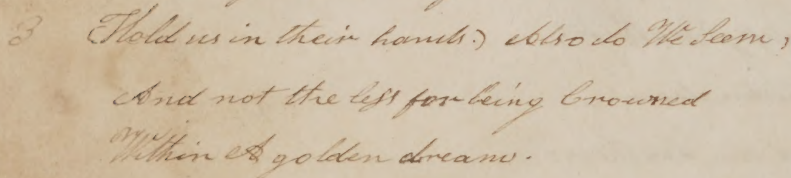 3 Hold us in their hands.) Also do We Seem,
And not the less for being Crowned
Within A golden dream.